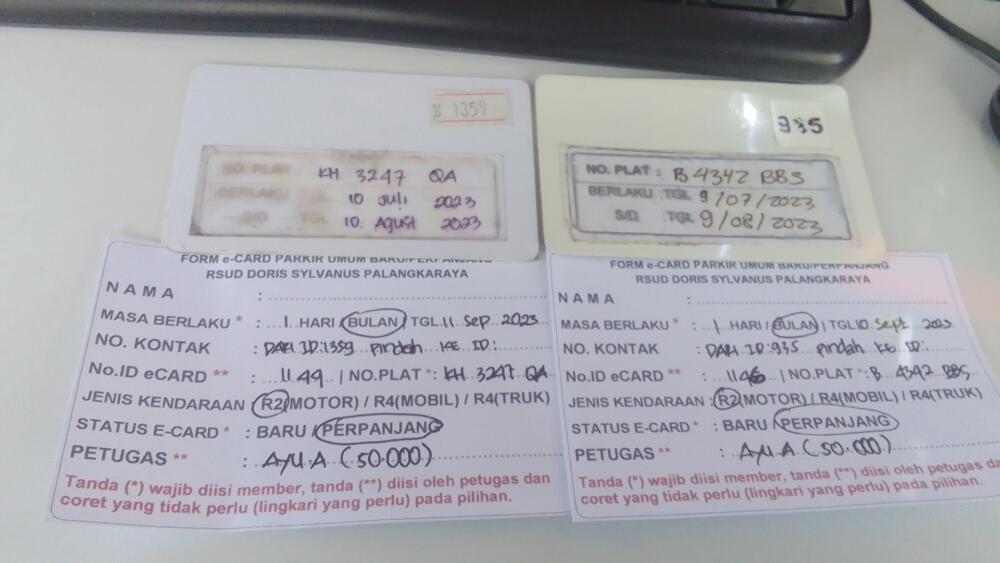 NO 1359
NO. PLAT KH 3247 QA
BERLAKU 10 Juli 2023
S/D TGL 10. Agust 2023
935
NO. PLAT : B 4342 BBS
BERLAKU :TGL 9/07/2023
S/D :TGL 9/08/2023
FORM e-CARD PARKIR UMUM BARU/PERPANJANG
RSUD DORIS SYLVANUS PALANGKARAYA
NAMA :
MASA BERLAKU * : 1 HARI / BULAN / TGL 11 Sep 2023
NO. KONTAK : DARI ID:1359 pindah KE ID:
No.ID eCARD ** : 1149 | NO.PLAT * : KH 3247 QA
JENIS KENDARAAN : R2(MOTOR) / R4(MOBIL) / R4(TRUK)
STATUS E-CARD * : BARU / PERPANJANG
PETUGAS ** : AYU A (50.000)
Tanda (*) wajib diisi member, tanda (**) diisi oleh petugas dan
coret yang tidak perlu (lingkari yang perlu) pada pilihan.
FORM e-CARD PARKIR UMUM BARU/PERPANJANG
RSUD DORIS SYLVANUS PALANGKARAYA
NAMA :
MASA BERLAKU * : 1 HARI / BULAN / TGL 10 Sept 2023
NO. KONTAK : DARI ID:935 pindah KE ID:
No.ID eCARD ** : 1146 | NO.PLAT * : B 4342 BBS
JENIS KENDARAAN : R2(MOTOR) / R4(MOBIL) / R4(TRUK)
STATUS E-CARD * : BARU / PERPANJANG
PETUGAS ** : AYU A (50.000)
Tanda (*) wajib diisi member, tanda (**) diisi oleh petugas da
coret yang tidak perlu (lingkari yang perlu) pada pilihan.